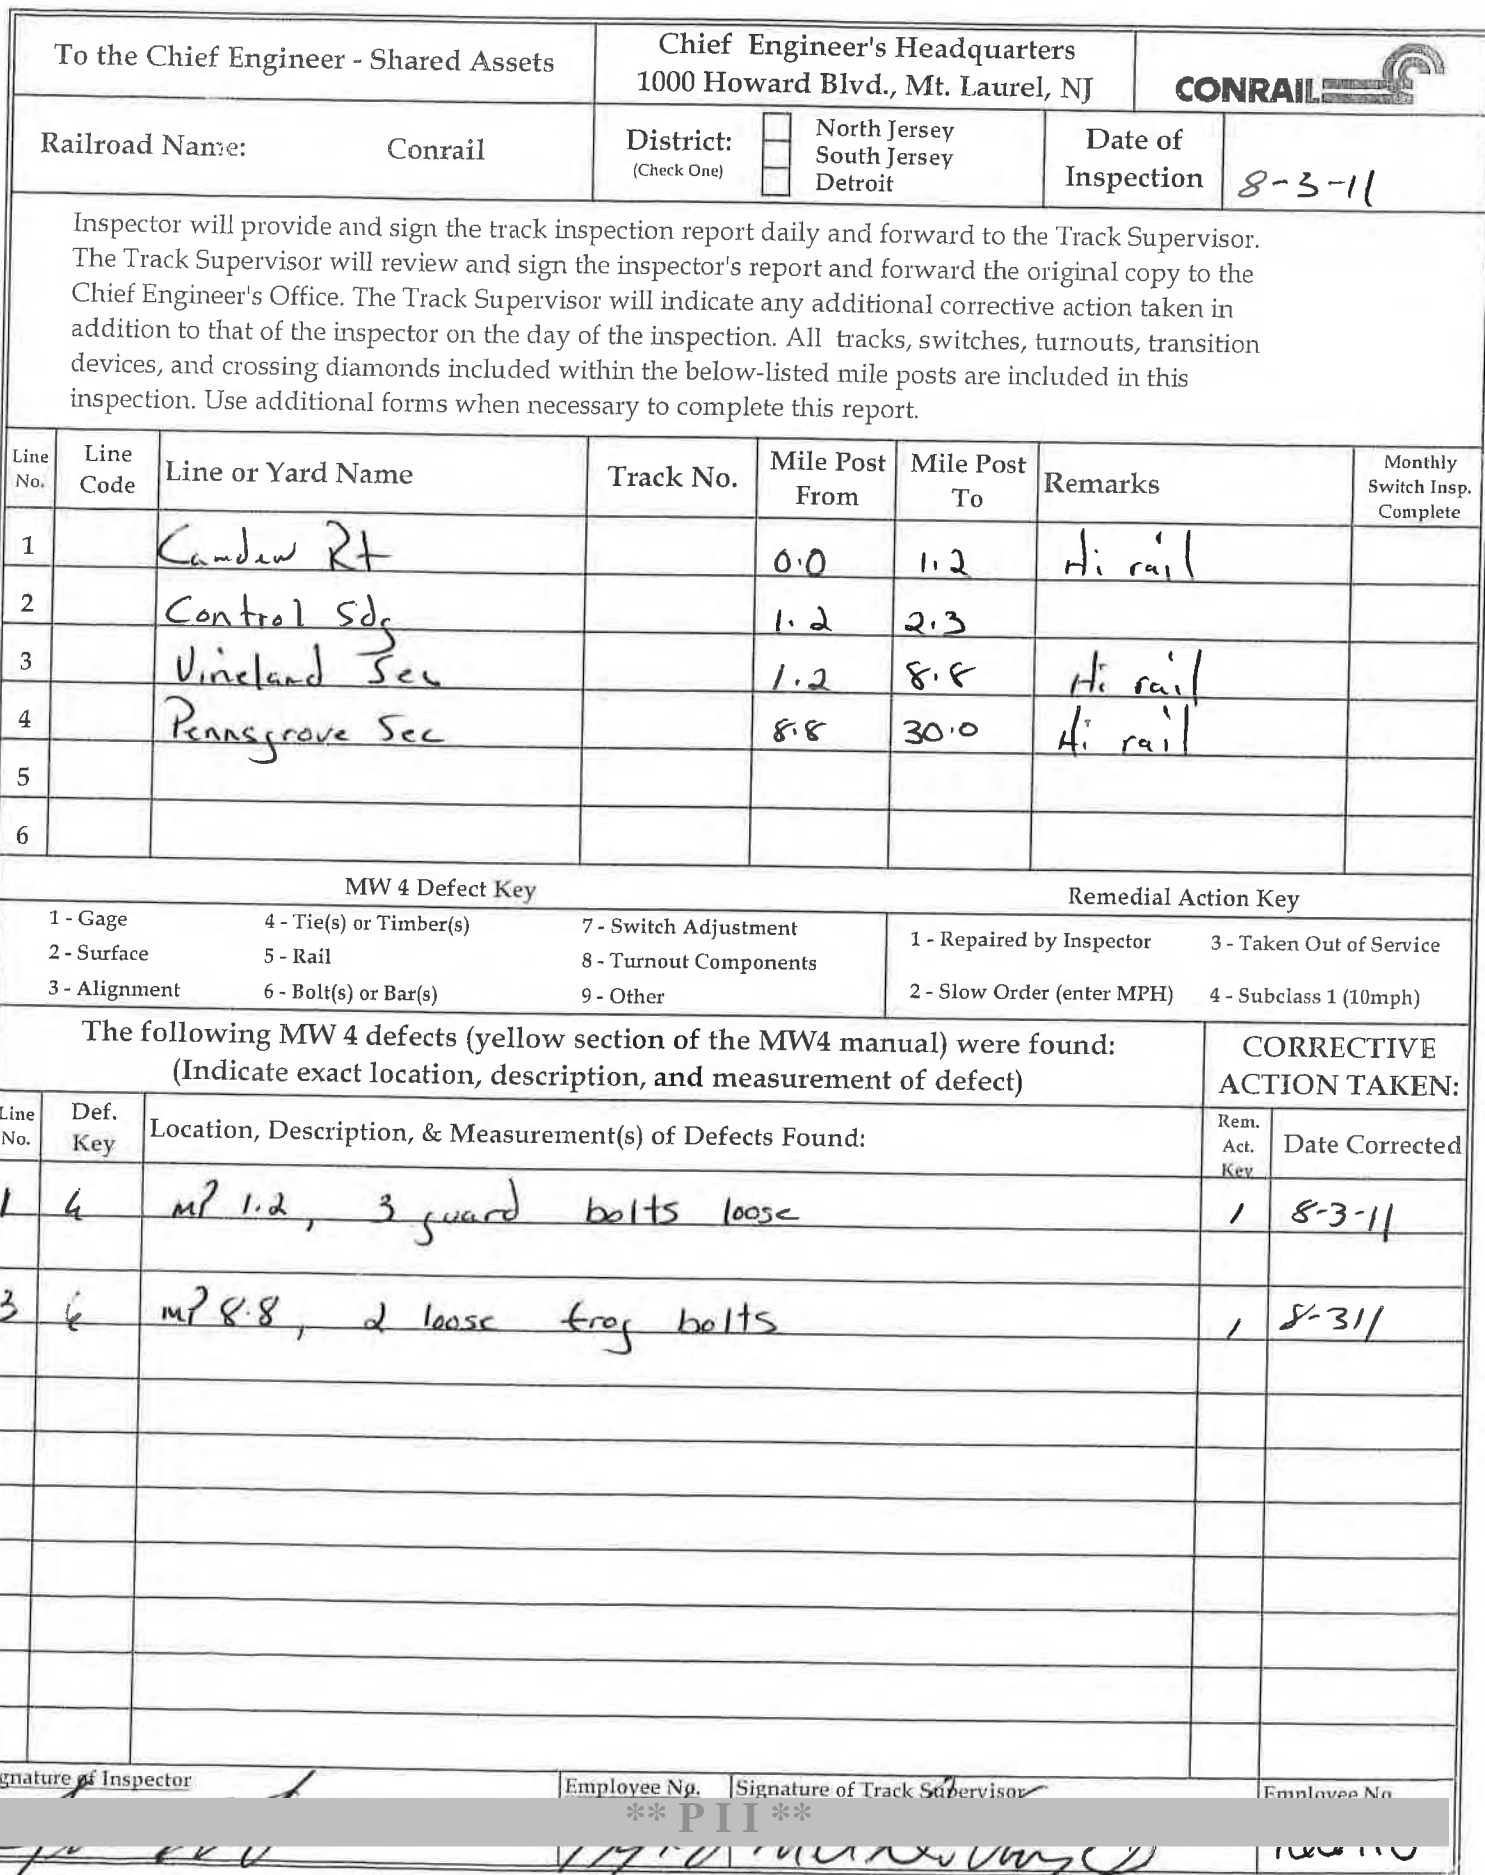 To the Chief Engineer - Shared Assets
Chief Engineer's Headquarters
1000 Howard Blvd., Mt. Laurel, NJ
CONRAIL
Railroad Name: Conrail
District:
(Check One)
North Jersey
South Jersey
Detroit
Date of
Inspection
8-3-11
Inspector will provide and sign the track inspection report daily and forward to the Track Supervisor.
The Track Supervisor will review and sign the inspector's report and forward the original copy to the
Chief Engineer's Office. The Track Supervisor will indicate any additional corrective action taken in
addition to that of the inspector on the day of the inspection. All tracks, switches, turnouts, transition
devices, and crossing diamonds included within the below-listed mile posts are included in this
inspection. Use additional forms when necessary to complete this report.
Line No. Line Code Line or Yard Name Track No. Mile Post From Mile Post To Remarks Monthly Switch Insp. Complete
1 Camden Rt 0.0 1.2 Hi rail
2 Control Sdg 1.2 2.3
3 Vineland Sec 1.2 8.8 Hi rail
4 Pennsgrove Sec 8.8 30.0 Hi rail
5
6
MW 4 Defect Key Remedial Action Key
1 - Gage 4 - Tie(s) or Timber(s) 7 - Switch Adjustment
2 - Surface 5 - Rail 8 - Turnout Components
3 - Alignment 6 - Bolt(s) or Bar(s) 9 - Other
1 - Repaired by Inspector 3 - Taken Out of Service
2 - Slow Order (enter MPH) 4 - Subclass 1 (10mph)
The following MW 4 defects (yellow section of the MW4 manual) were found:
(Indicate exact location, description, and measurement of defect)
CORRECTIVE
ACTION TAKEN:
Line No. Def. Key Location, Description, & Measurement(s) of Defects Found: Rem. Act. Key Date Corrected
1 6 MP 1.2, 3 guard bolts loose 1 8-3-11
3 6 MP 8.8, 2 loose frog bolts 1 8-311
gnature of Inspector Employee No. Signature of Track Supervisor Employee No.
** P I I **